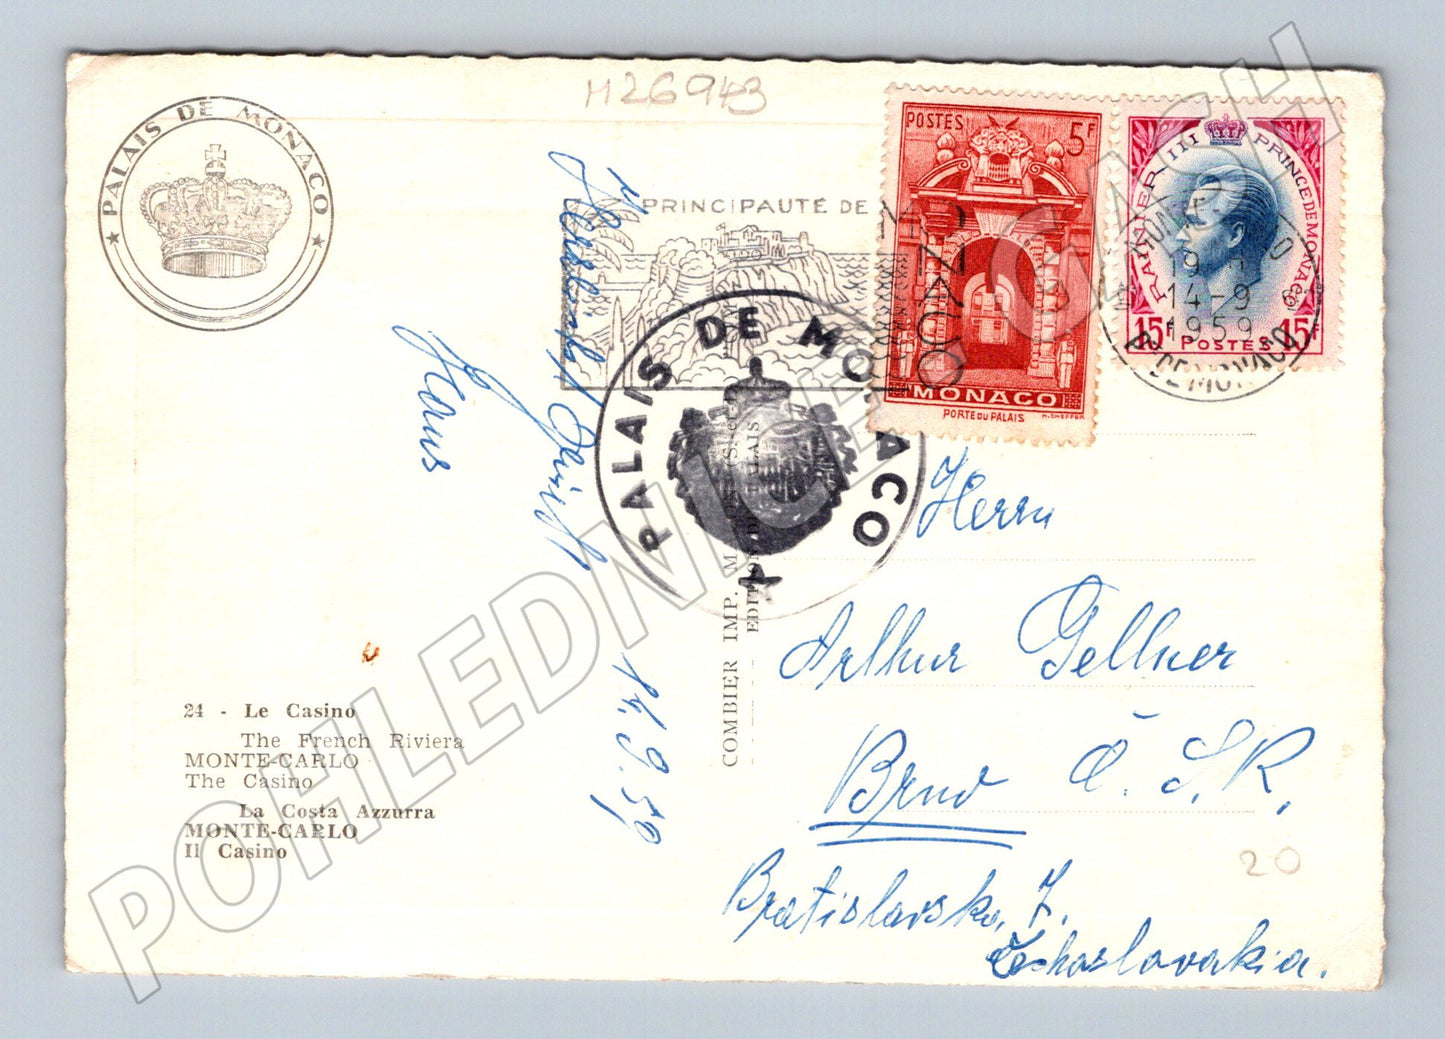 M26943
PALAIS DE MONACO
PRINCIPAUTÉ DE
MONACO
POSTES 5F
MONACO
PORTE DU PALAIS
H. CHEFFER
RAINIER III PRINCE DE MONACO
15F POSTES 15F
19 H
14-9
1959
PALAIS DE MONACO
Hans
14.9.59
COMBIER IMP. MACON
24 - Le Casino
The French Riviera
MONTE-CARLO
The Casino
La Costa Azzurra
MONTE-CARLO
Il Casino
Herrn
Arthur Gellner
Brno Č.S.R.
Bratislavska, 7.
Čechoslovakia.
20
POHLEDNICE GASH